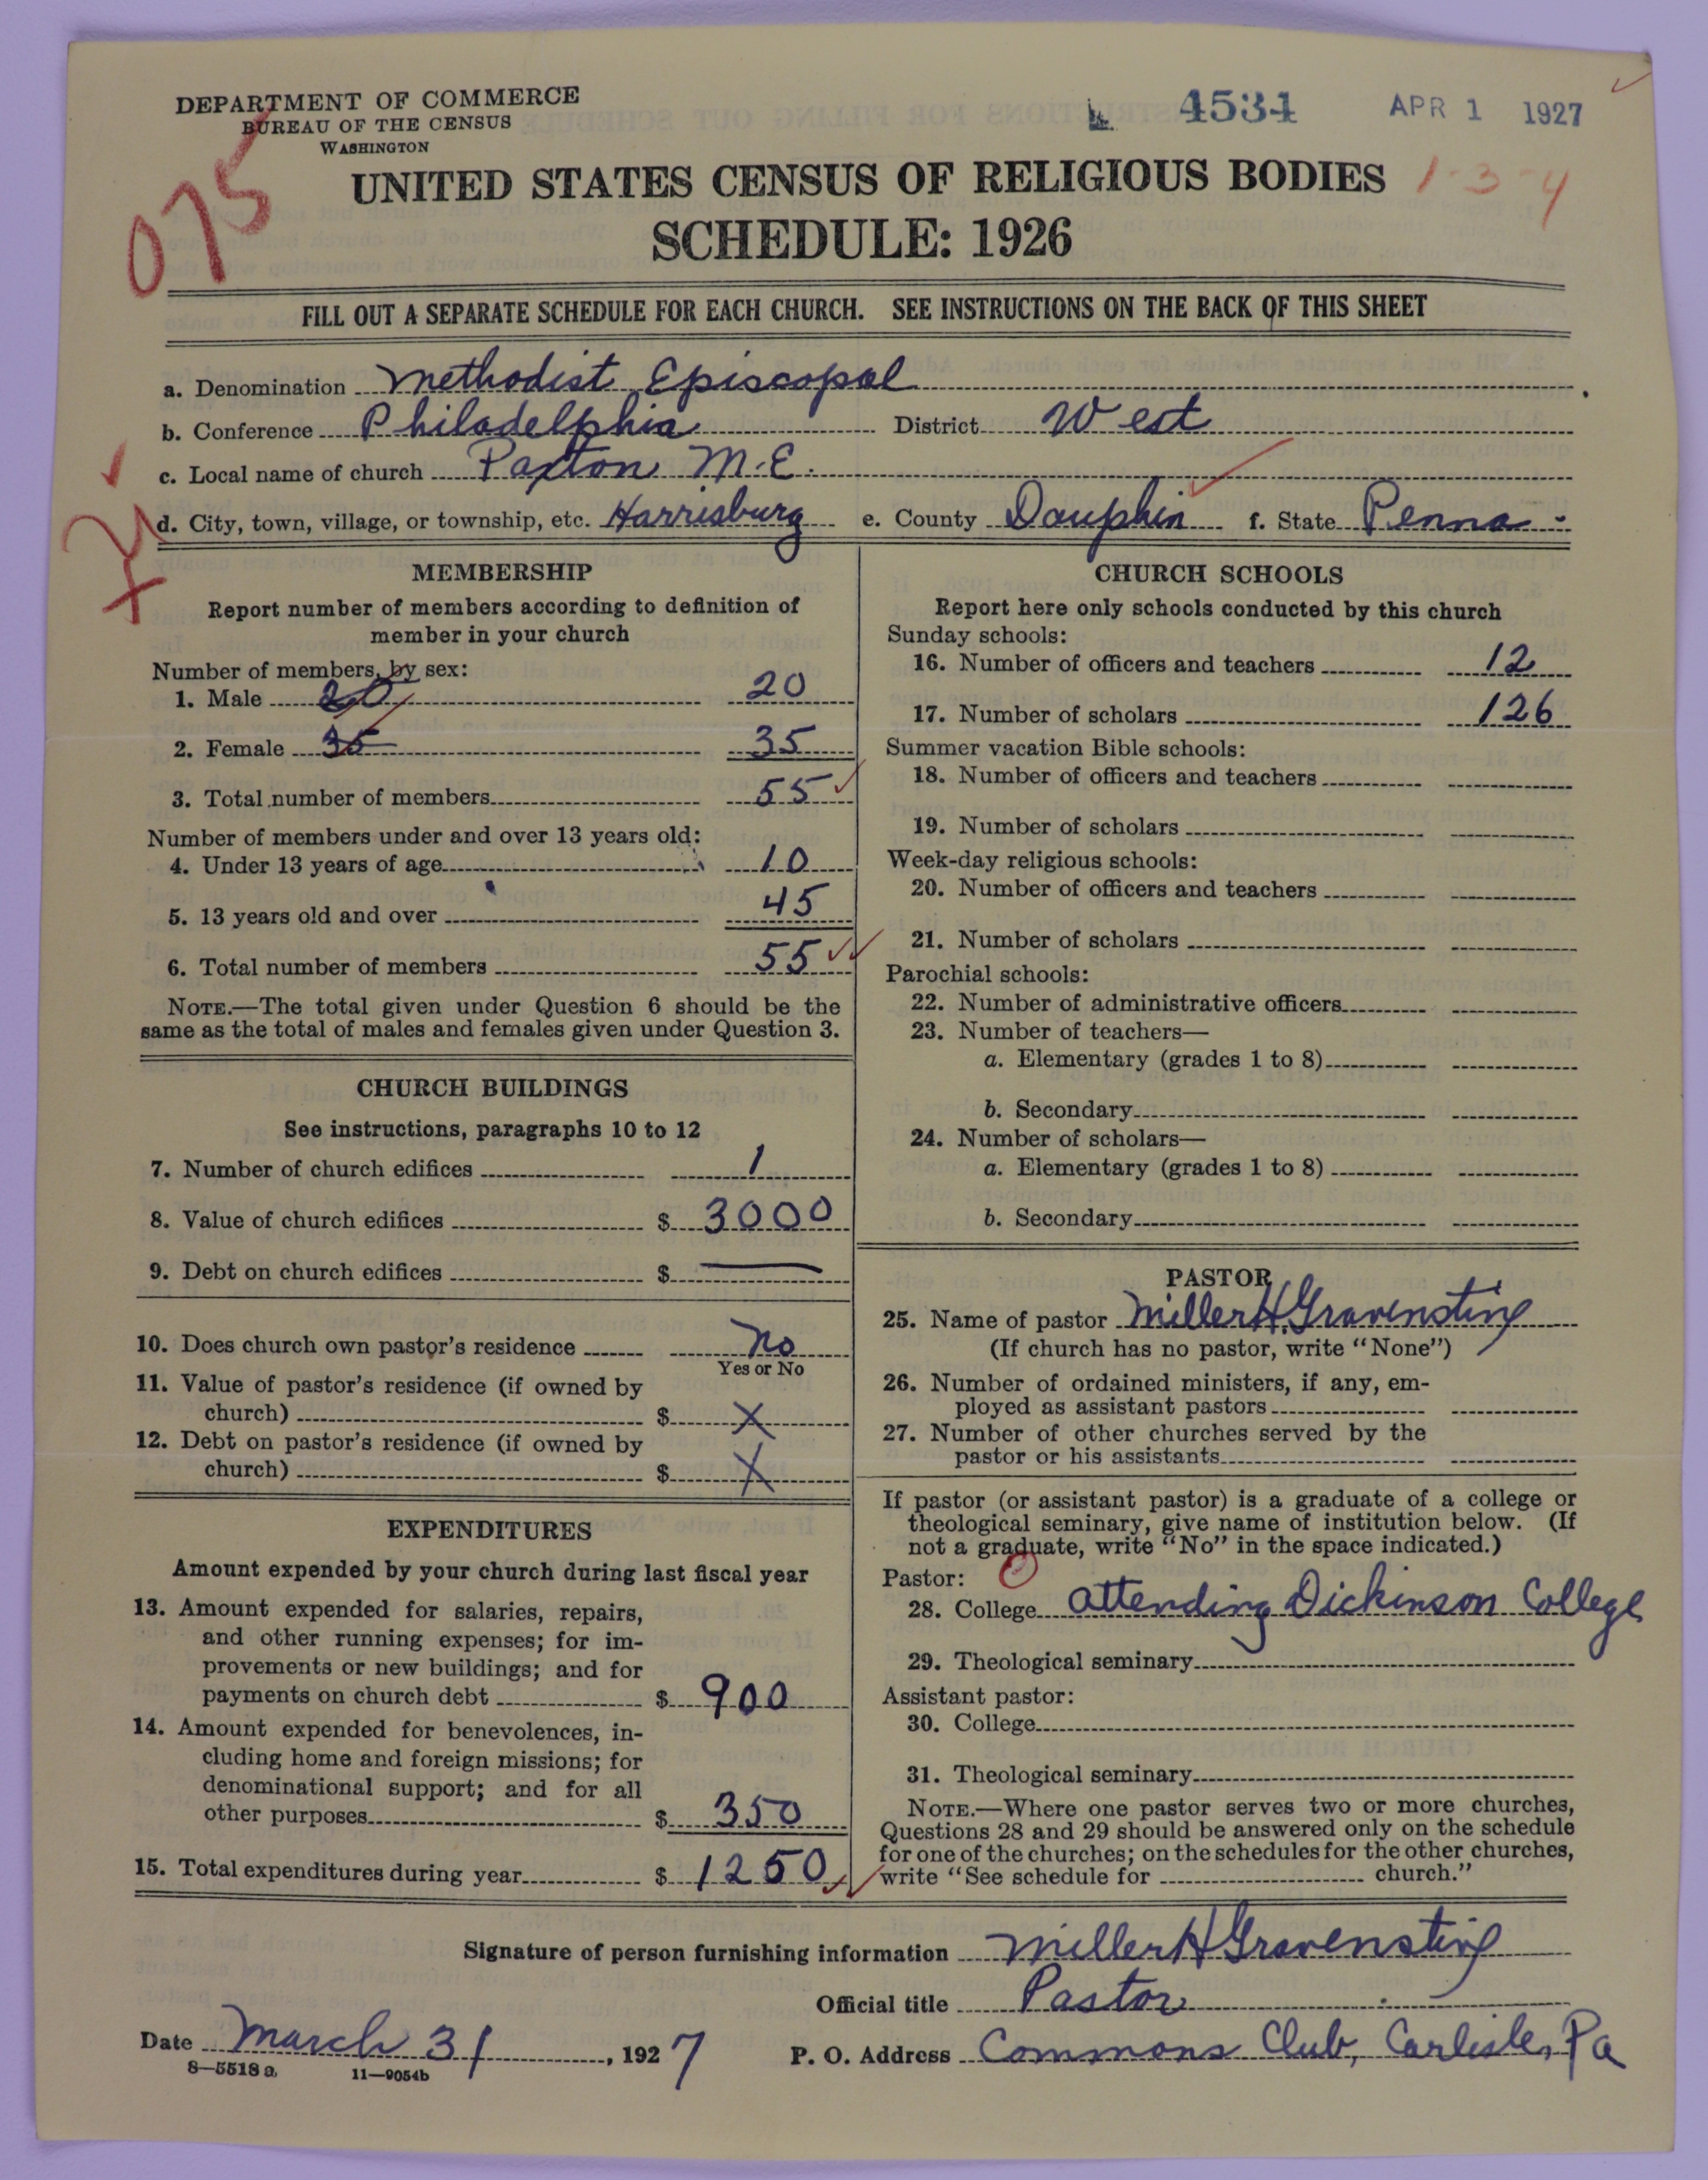 DEPARTMENT OF COMMERCE
BUREAU OF THE CENSUS
WASHINGTON
4534 APR 1 1927
075
UNITED STATES CENSUS OF RELIGIOUS BODIES 1-3-4
SCHEDULE: 1926
FILL OUT A SEPARATE SCHEDULE FOR EACH CHURCH. SEE INSTRUCTIONS ON THE BACK OF THIS SHEET
a. Denomination Methodist Episcopal
b. Conference Philadelphia District West
c. Local name of church Paxton M.E.
d. City, town, village, or township, etc. Harrisburg e. County Dauphin f. State Penna.
MEMBERSHIP
Report number of members according to definition of
member in your church
Number of members, by sex:
1. Male 20 20
2. Female 35 35
3. Total number of members 55
Number of members under and over 13 years old:
4. Under 13 years of age 10
5. 13 years old and over 45
6. Total number of members 55
NOTE.—The total given under Question 6 should be the
same as the total of males and females given under Question 3.
CHURCH BUILDINGS
See instructions, paragraphs 10 to 12
7. Number of church edifices 1
8. Value of church edifices $ 3000
9. Debt on church edifices $ —
10. Does church own pastor's residence No
Yes or No
11. Value of pastor's residence (if owned by
church) $ X
12. Debt on pastor's residence (if owned by
church) $ X
EXPENDITURES
Amount expended by your church during last fiscal year
13. Amount expended for salaries, repairs,
and other running expenses; for im-
provements or new buildings; and for
payments on church debt $ 900
14. Amount expended for benevolences, in-
cluding home and foreign missions; for
denominational support; and for all
other purposes $ 350
15. Total expenditures during year $ 1250
CHURCH SCHOOLS
Report here only schools conducted by this church
Sunday schools:
16. Number of officers and teachers 12
17. Number of scholars 126
Summer vacation Bible schools:
18. Number of officers and teachers
19. Number of scholars
Week-day religious schools:
20. Number of officers and teachers
21. Number of scholars
Parochial schools:
22. Number of administrative officers
23. Number of teachers—
a. Elementary (grades 1 to 8)
b. Secondary
24. Number of scholars—
a. Elementary (grades 1 to 8)
b. Secondary
PASTOR
25. Name of pastor Miller H. Gravenstine
(If church has no pastor, write "None")
26. Number of ordained ministers, if any, em-
ployed as assistant pastors
27. Number of other churches served by the
pastor or his assistants
If pastor (or assistant pastor) is a graduate of a college or
theological seminary, give name of institution below. (If
not a graduate, write "No" in the space indicated.)
Pastor:
28. College attending Dickinson College
29. Theological seminary
Assistant pastor:
30. College
31. Theological seminary
NOTE.—Where one pastor serves two or more churches,
Questions 28 and 29 should be answered only on the schedule
for one of the churches; on the schedules for the other churches,
write "See schedule for church."
Signature of person furnishing information Miller H Gravenstine
Official title Pastor
Date March 31, 1927 P. O. Address Commons Club, Carlisle, Pa
8—5518 a 11—9054b